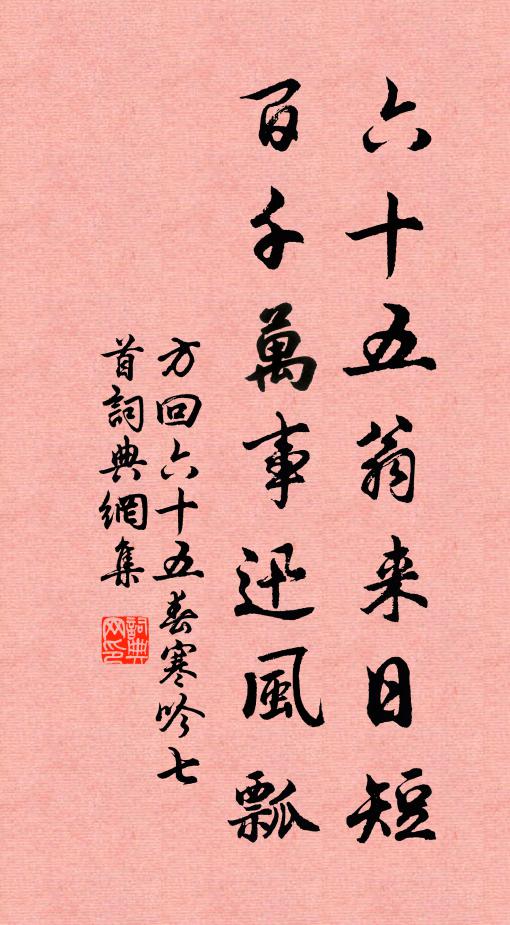 六十五翁来日短
百千萬事迅風瓢
方回六十五春寒吟七
首詞典網集
詞典網印